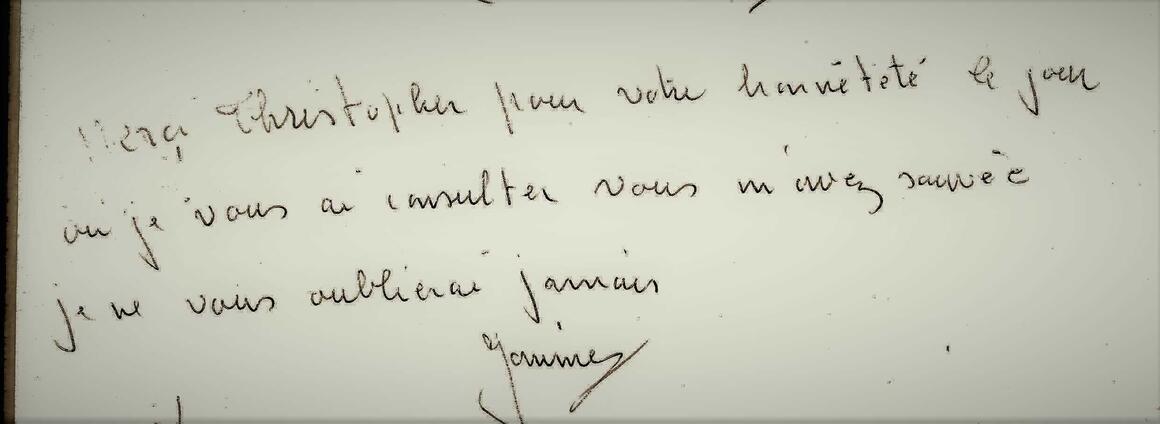 Merçi Christopher pour votre honnêteté le jour
où je vous ai consulter vous m'avez sauvée
je ne vous oublierai jamais